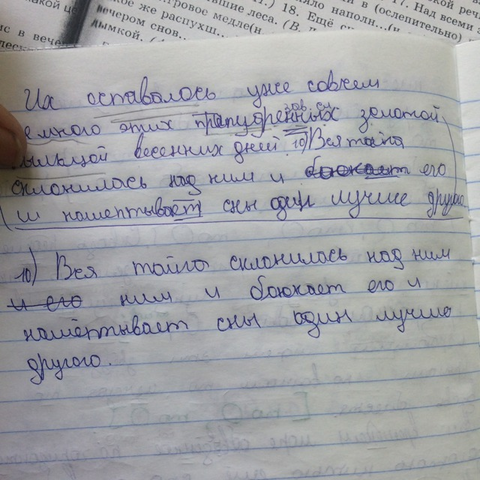 17. Над всеми
18. Ещё
вечером снов...
дымкой.
Их оставалось уже совсем
емного этих припудренных золотой
дымкой весенних дней. 10) Вся тайга
склонилась над ним и баюкает его
и нашёптывает сны один лучше другого
10) Вся тайга склонилась над ним
и его ним и баюкает его и
нашёптывает сны один лучше
другого.